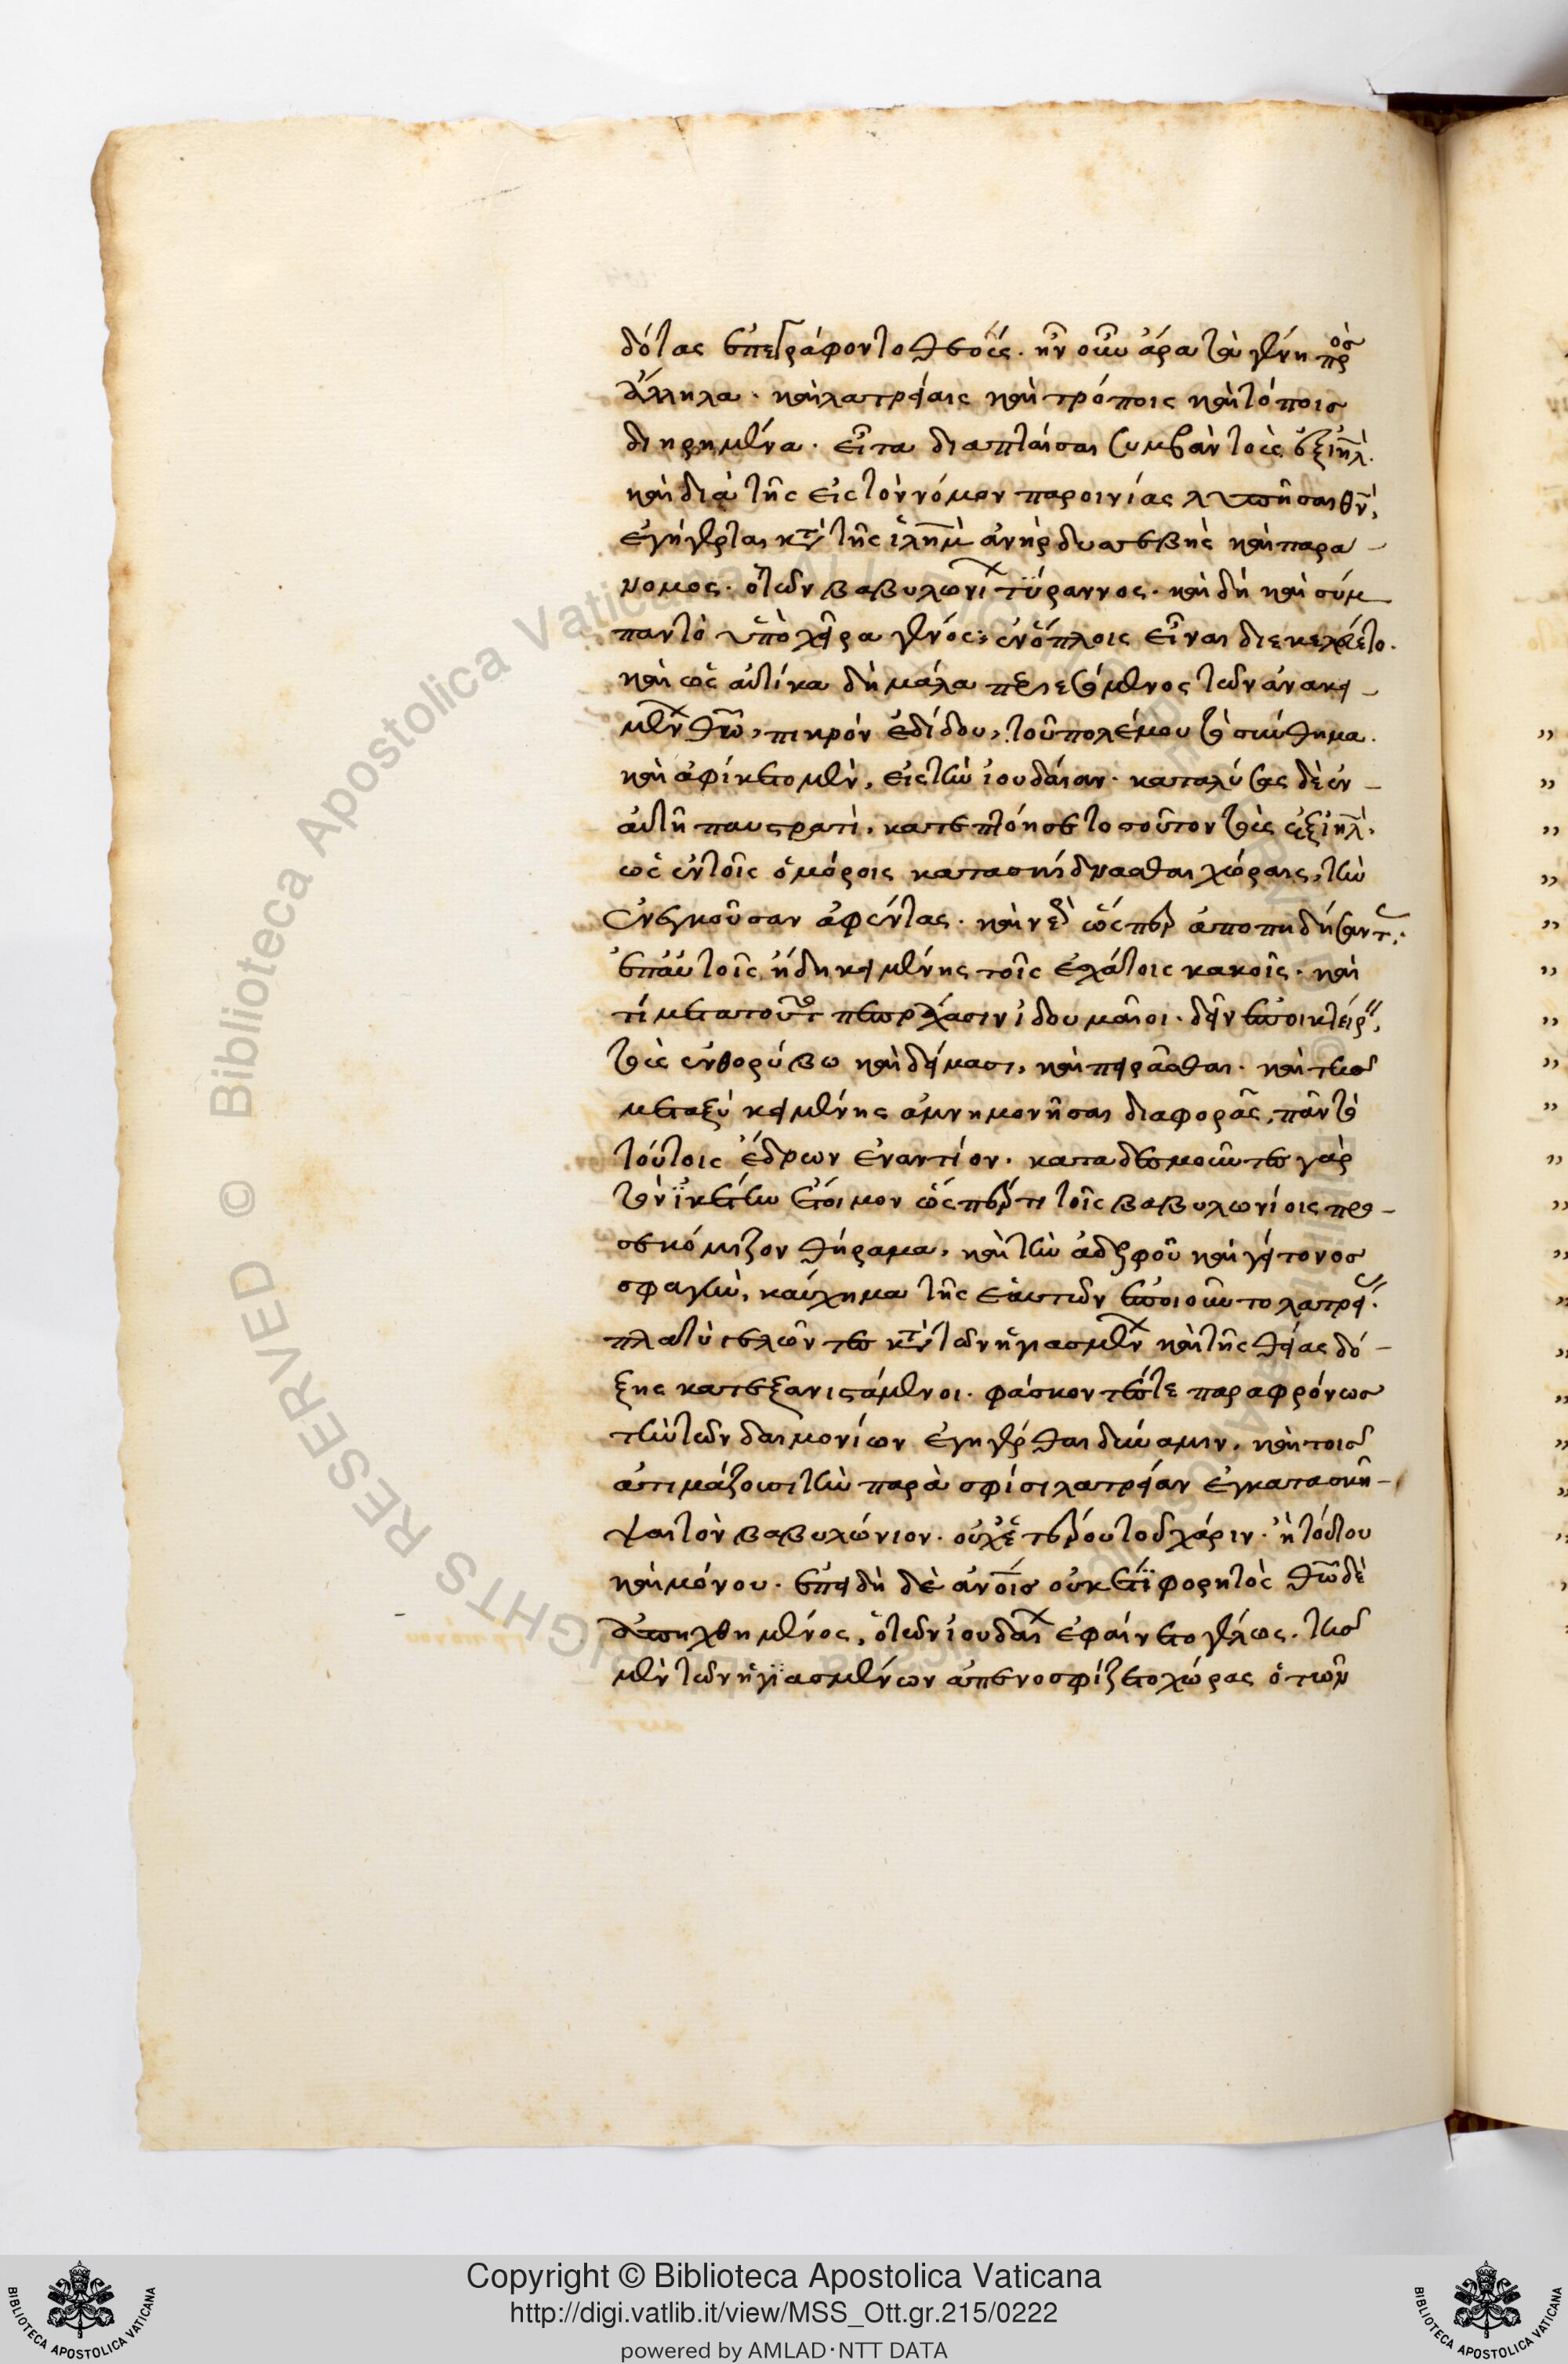 δότας ἐπεγράφοντο θεούς. ἦν οὖν ἄρα τὰ γένη πρὸς
ἄλληλα. καὶ λατρείαις καὶ τρόποις καὶ τόποις
διηρημένα. εἶτα διαπταῖσαι συμβὰν τοὺς ἐξ ιηλ.
καὶ διὰ τῆς εἰς τὸν νόμον παροινίας λυπῆσαι θν,
ἐγήγερται κατὰ τῆς ιλημ ἀνὴρ δυσσεβὴς καὶ παρα-
νομος. ὁ τῶν βαβυλωνίων τύραννος. καὶ δὴ καὶ σύμ-
παν τὸ ὑπὸ χεῖρα γένος ἐν ὅπλοις εἶναι διεκελεύετο.
καὶ ὡς αὐτίκα δὴ μάλα περιεσόμενος τῶν ἀνακει-
μένων θεῶ, πικρὸν ἐδίδου, τοῦ πολέμου τὸ σύνθημα.
καὶ ἀφίκετο μὲν, εἰς τὴν ἰουδαίαν. καταλύσας δὲ ἐν
αὐτῆ πανστρατὶ, κατεπτόησε τοσοῦτον τοὺς ἐξ ιηλ,
ὡς ἐν τοῖς ὁμόροις κατασκίδνασθαι χώραις, τὴν
ἐνεγκοῦσαν ἀφέντας. καὶ ὥσπερ ἀποπηδήσαντες,
ἐπ' αὐτοῖς ἤδη κειμένης τοῖς ἐσχάτοις κακοῖς. καὶ
τί μετὰ τοῦτο πεπράχασιν ἰδουμαῖοι. δεῖν ἐποικτείρειν,
τοὺς ἐν θορύβω καὶ δείμασι, καὶ πειρᾶσθαι. καὶ τῆς
μεταξὺ κειμένης ἀμνημονῆσαι διαφορᾶς, πᾶν τὸ
τούτοις ἔδρων ἐναντίον. καταδεσμοῦντες γὰρ
τὸν ἱκέτην ἕτοιμον ὥσπερ τι τοῖς βαβυλωνίοις προ-
σεκόμιζον θήραμα, καὶ τὴν ἀδελφοῦ καὶ γείτονος
σφαγὴν, καύχημα τῆς ἑαυτῶν ἐποιοῦντο λατρείας.
πλατὺ γελῶντες κατὰ τῶν ἡγιασμένων καὶ τῆς θείας δό-
ξης κατεξανιστάμενοι. φάσκοντές τε παραφρόνως
τὴν τῶν δαιμονίων ἐγηγέρθαι δύναμιν, καὶ τοῖς
ἀτιμάζουσι τὴν παρὰ σφίσι λατρείαν ἐγκατασκῆ-
ψαι τὸν βαβυλώνιον. οὐχ ἑτέρου του χάριν. ἢ τούτου
καὶ μόνου. ἐπειδὴ δὲ ἀνοις οὐκ ἔτι φορητὸς θῶ δὲ
ἀπηχθημένος, ὁ τῶν ἰουδαίων ἐφαίνετο γέλως. τῆς
μὲν τῶν ἡγιασμένων ἀπενοσφίζετο χώρας ὁ τῶν